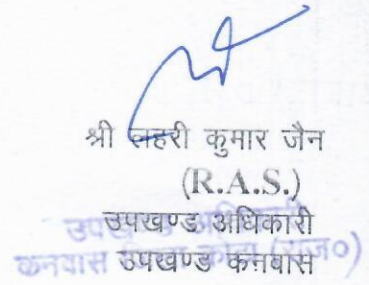 श्री लहरी कुमार जैन
(R.A.S.)
उपखण्ड अधिकारी
उपखण्ड कनवास
उपखण्ड अधिकारी
कनवास जिला कोटा (राज०)